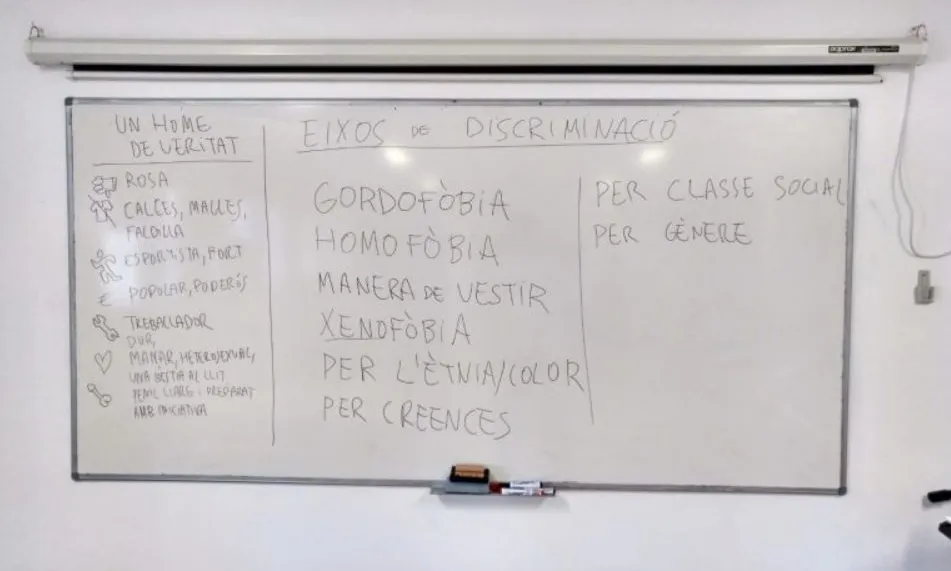 UN HOME
DE VERITAT
ROSA
CALCES, MALLES,
FALDILLA
ESPORTISTA, FORT
€ POPULAR, PODERÓS
TREBALLADOR
DUR,
MANAR, HETEROSEXUAL,
UNA BESTIA AL LLIT
PENIL LLARG i PREPARAT
AMB INICIATIVA
EIXOS DE DISCRIMINACIÓ
GORDOFÒBIA
HOMOFÒBIA
MANERA DE VESTIR
XENOFÒBIA
PER L'ÈTNIA/COLOR
PER CREENCES
PER CLASSE SOCIAL
PER GÈNERE
approx